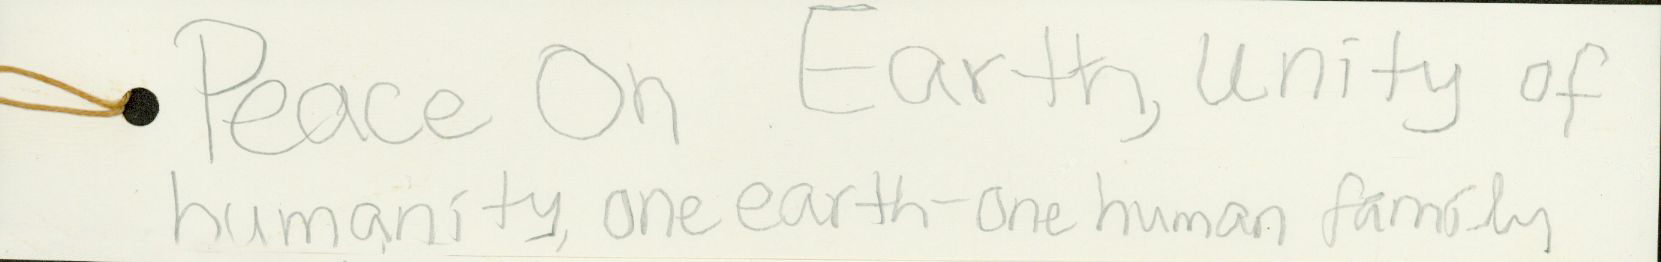 Peace On Earth, Unity of
humanity, one earth-one human family